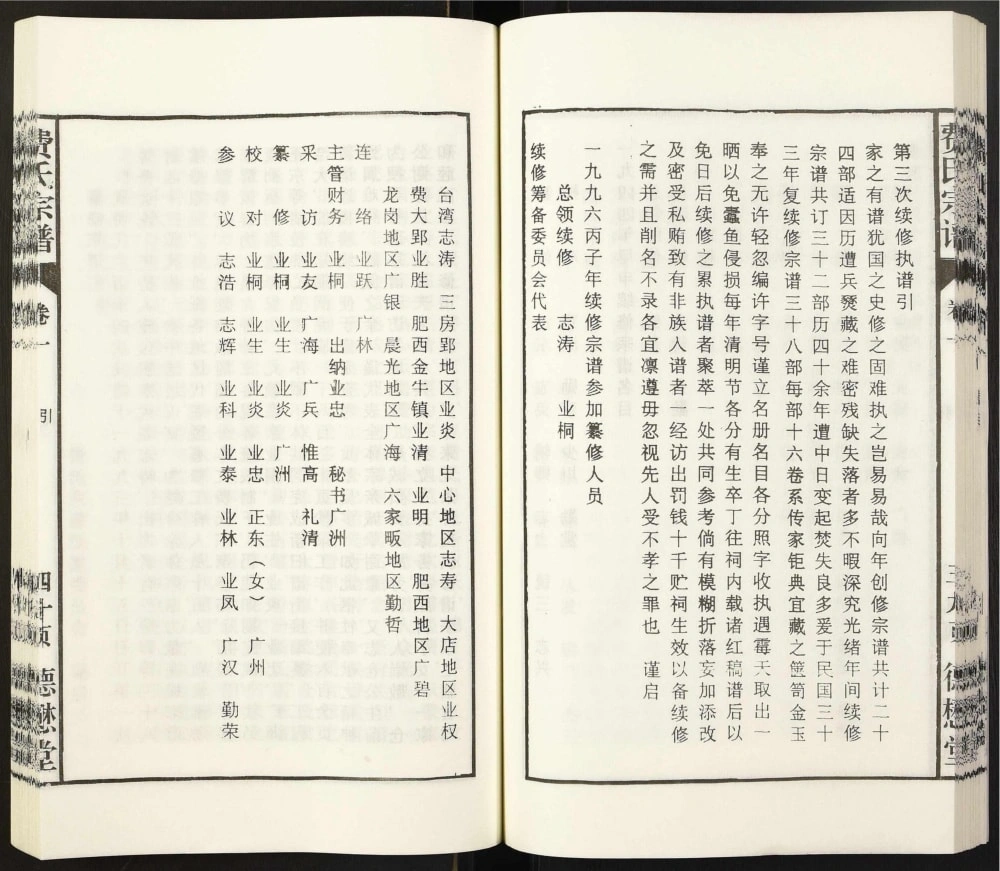 第三次续修执谱引
家之有谱犹国之史修之固难执之岂易易哉向年创修宗谱共计二十
四部适因历遭兵燹藏之难密残缺失落者多不暇深究光绪年间续修
宗谱共订三十二部历四十余年遭中日变起焚失良多爰于民国三十
三年复续修宗谱三十八部每部十六卷系传家钜典宜藏之箧笥金玉
奉之无许轻忽编许字号谨立名册名目各分照字收执遇霉天取出一
晒以免蠹鱼侵损每年清明节各分有生卒丁往祠内载诸红稿谱后以
免日后续修之累执谱者聚萃一处共同参考倘有模糊折落妄加添改
及密受私贿致有非族人谱者一经访出罚钱十千贮祠生效以备续修
之需并且削名不录各宜凛遵毋忽视先人受不孝之罪也 谨启
一九九六丙子年续修宗谱参加纂修人员
总领续修 志涛 业桐
续修筹备委员会代表
台湾志涛 三房郢地区业炎 中心地区志寿 大店地区业权
费大郢业胜 肥西金牛镇业清 业明 肥西地区广碧
龙岗地区广银 晨光地区广海 六家畈地区勤哲
连络 业跃 广林
主管财务 业桐 出纳业忠 秘书广洲
采访 业友 广海 广兵 惟高 礼清
纂修 业桐 业生 业炎 广洲
校对 业桐 业生 业炎 业忠 正东（女） 广州
参议 志浩 志辉 业科 业泰 业林 业凤 广汉 勤荣
费氏宗谱
卷一
引
四十页
德懋堂